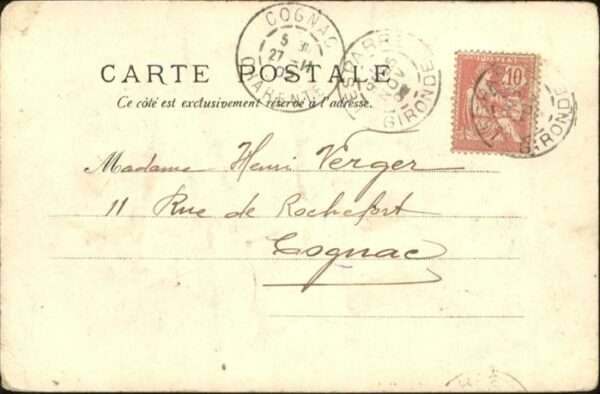 COGNAC
5
27
02
CHARENTE
LESPARRE
GIRONDE
10
GIRONDE
CARTE POSTALE
Ce côté est exclusivement réservé à l'adresse.
Madame Henri Verger
11 Rue de Rochefort
Cognac